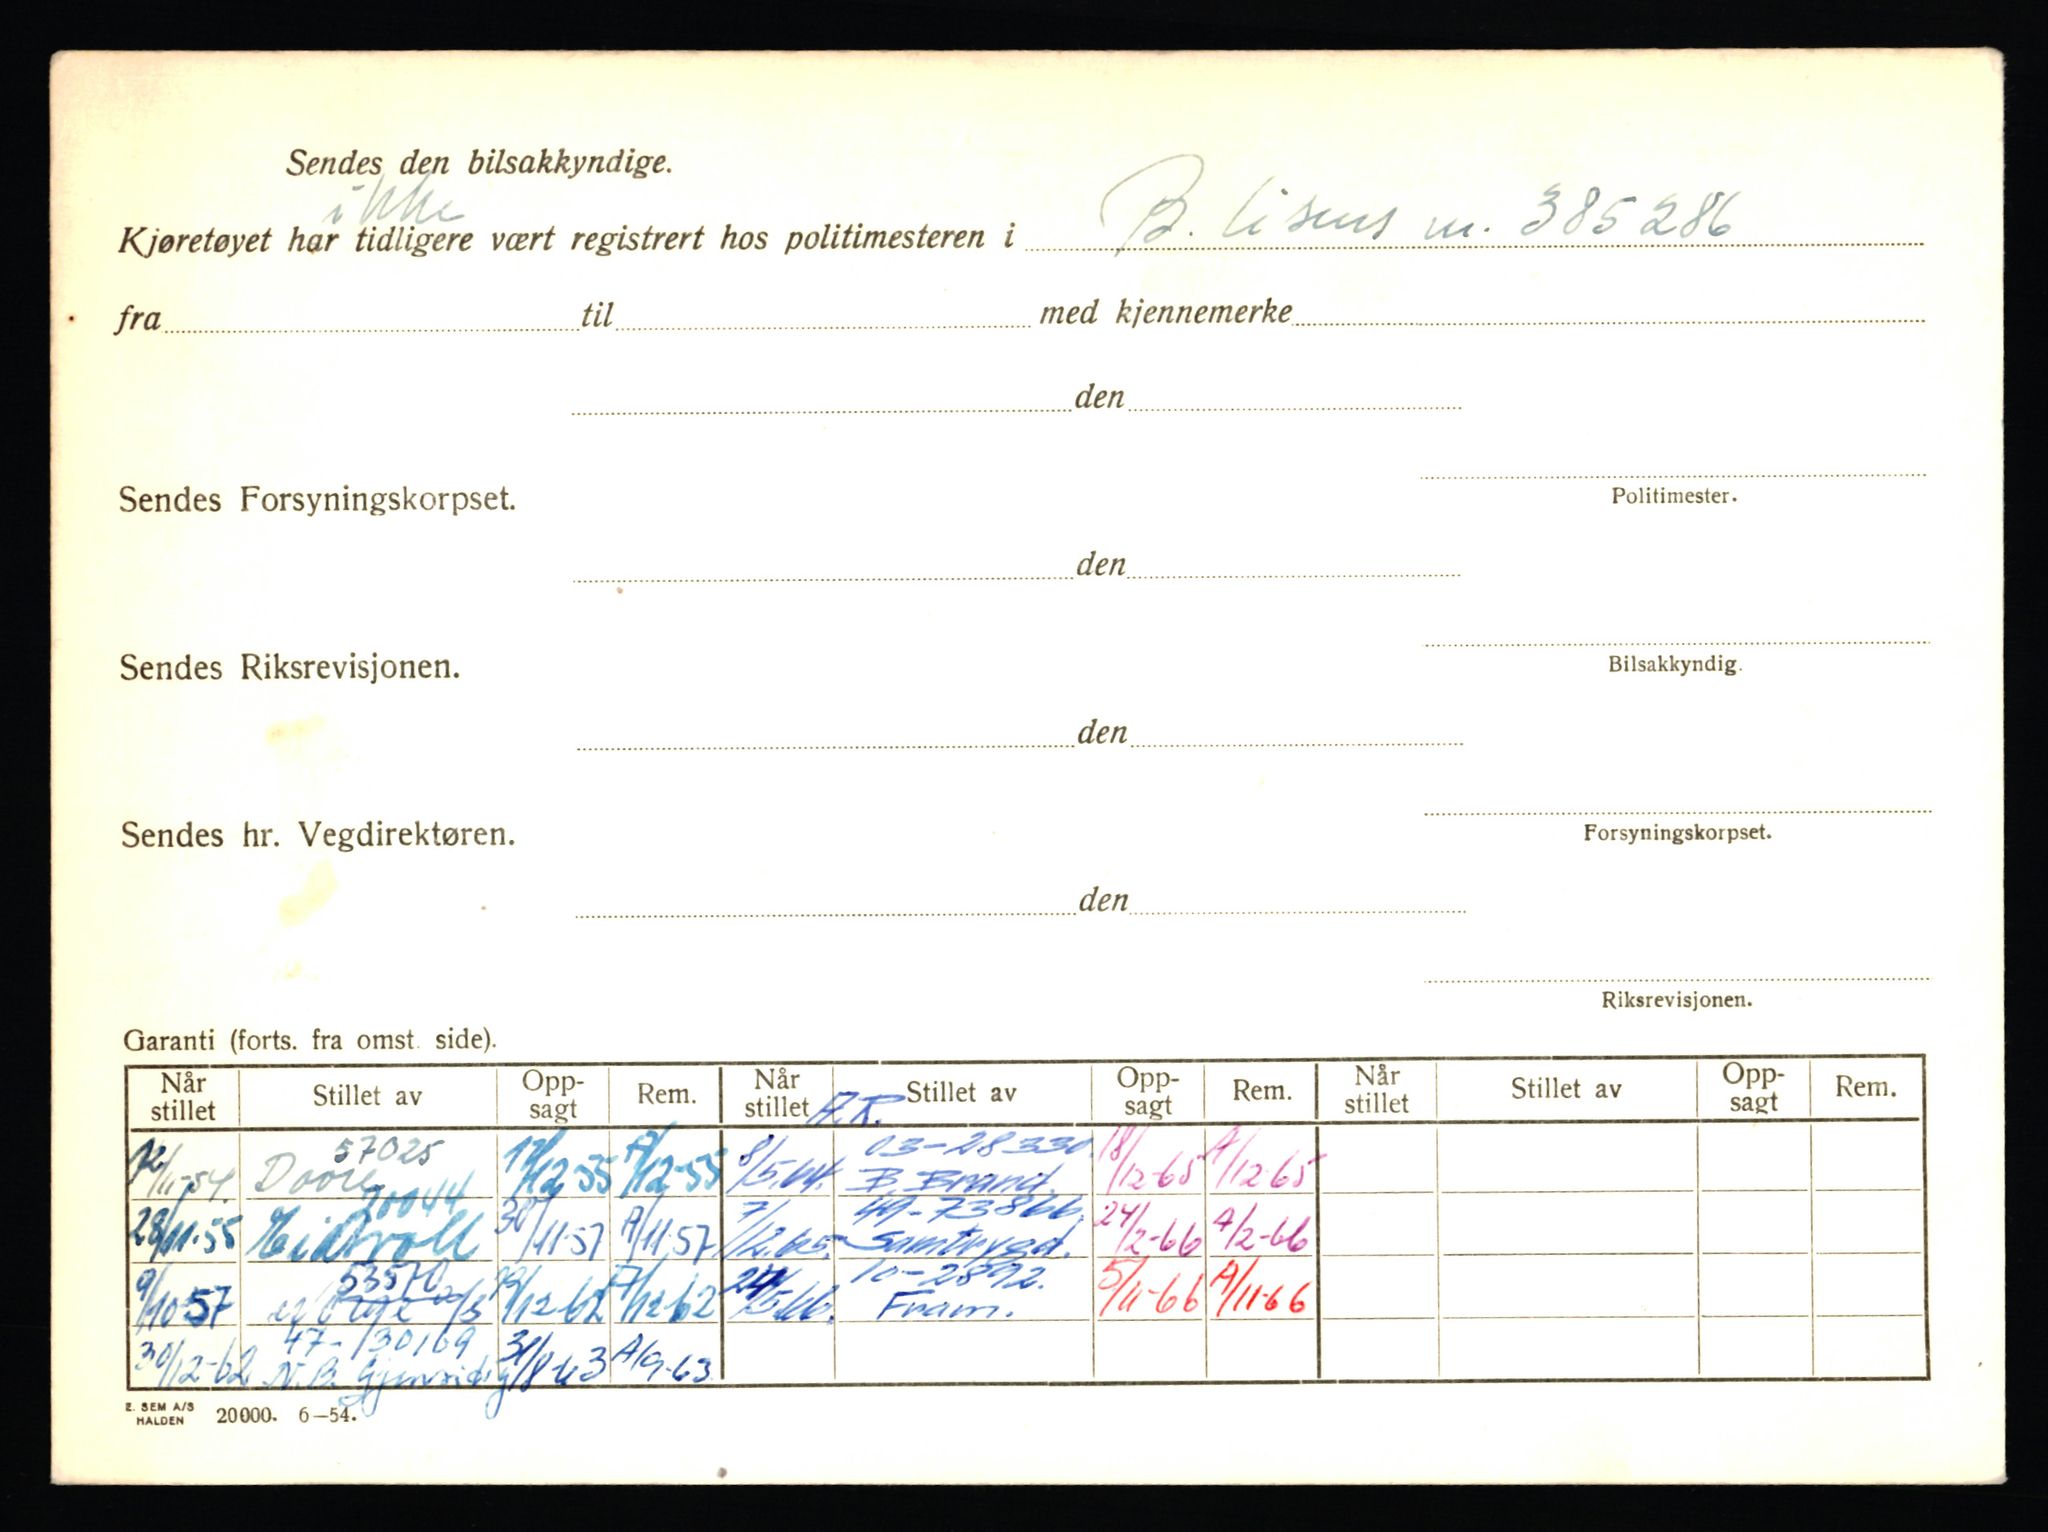 Sendes den bilsakkyndige.
ikke
Kjøretøyet har tidligere vært registrert hos politimesteren i B. lisens nr. 385286
fra til med kjennemerke
den
Politimester.
Sendes Forsyningskorpset.
den
Bilsakkyndig.
Sendes Riksrevisjonen.
den
Forsyningskorpset.
Sendes hr. Vegdirektøren.
den
Riksrevisjonen.
Garanti (forts. fra omst. side).
Når stillet Stillet av Opp-sagt Rem. Når stillet Stillet av Opp-sagt Rem. Når stillet Stillet av Opp-sagt Rem.
57025 03-28330
12/11-54. 12-55 12-55 8/5.64. B Brand. 18/12-65 A/12-65
20044 49-73866
28/11-55 Eidsvoll 30/11-57 A/11.57 7/12.65. Samtrygd. 24/2-66 A/2-66
53570 10-2892.
9/10-57 12-62 12-62 Fram. 5/11-66 A/11-66
47-130169
30/12-62 N.B. Gjensidig 31/8-63 A/9-63
E. SEM A/S
HALDEN 20000. 6—54.